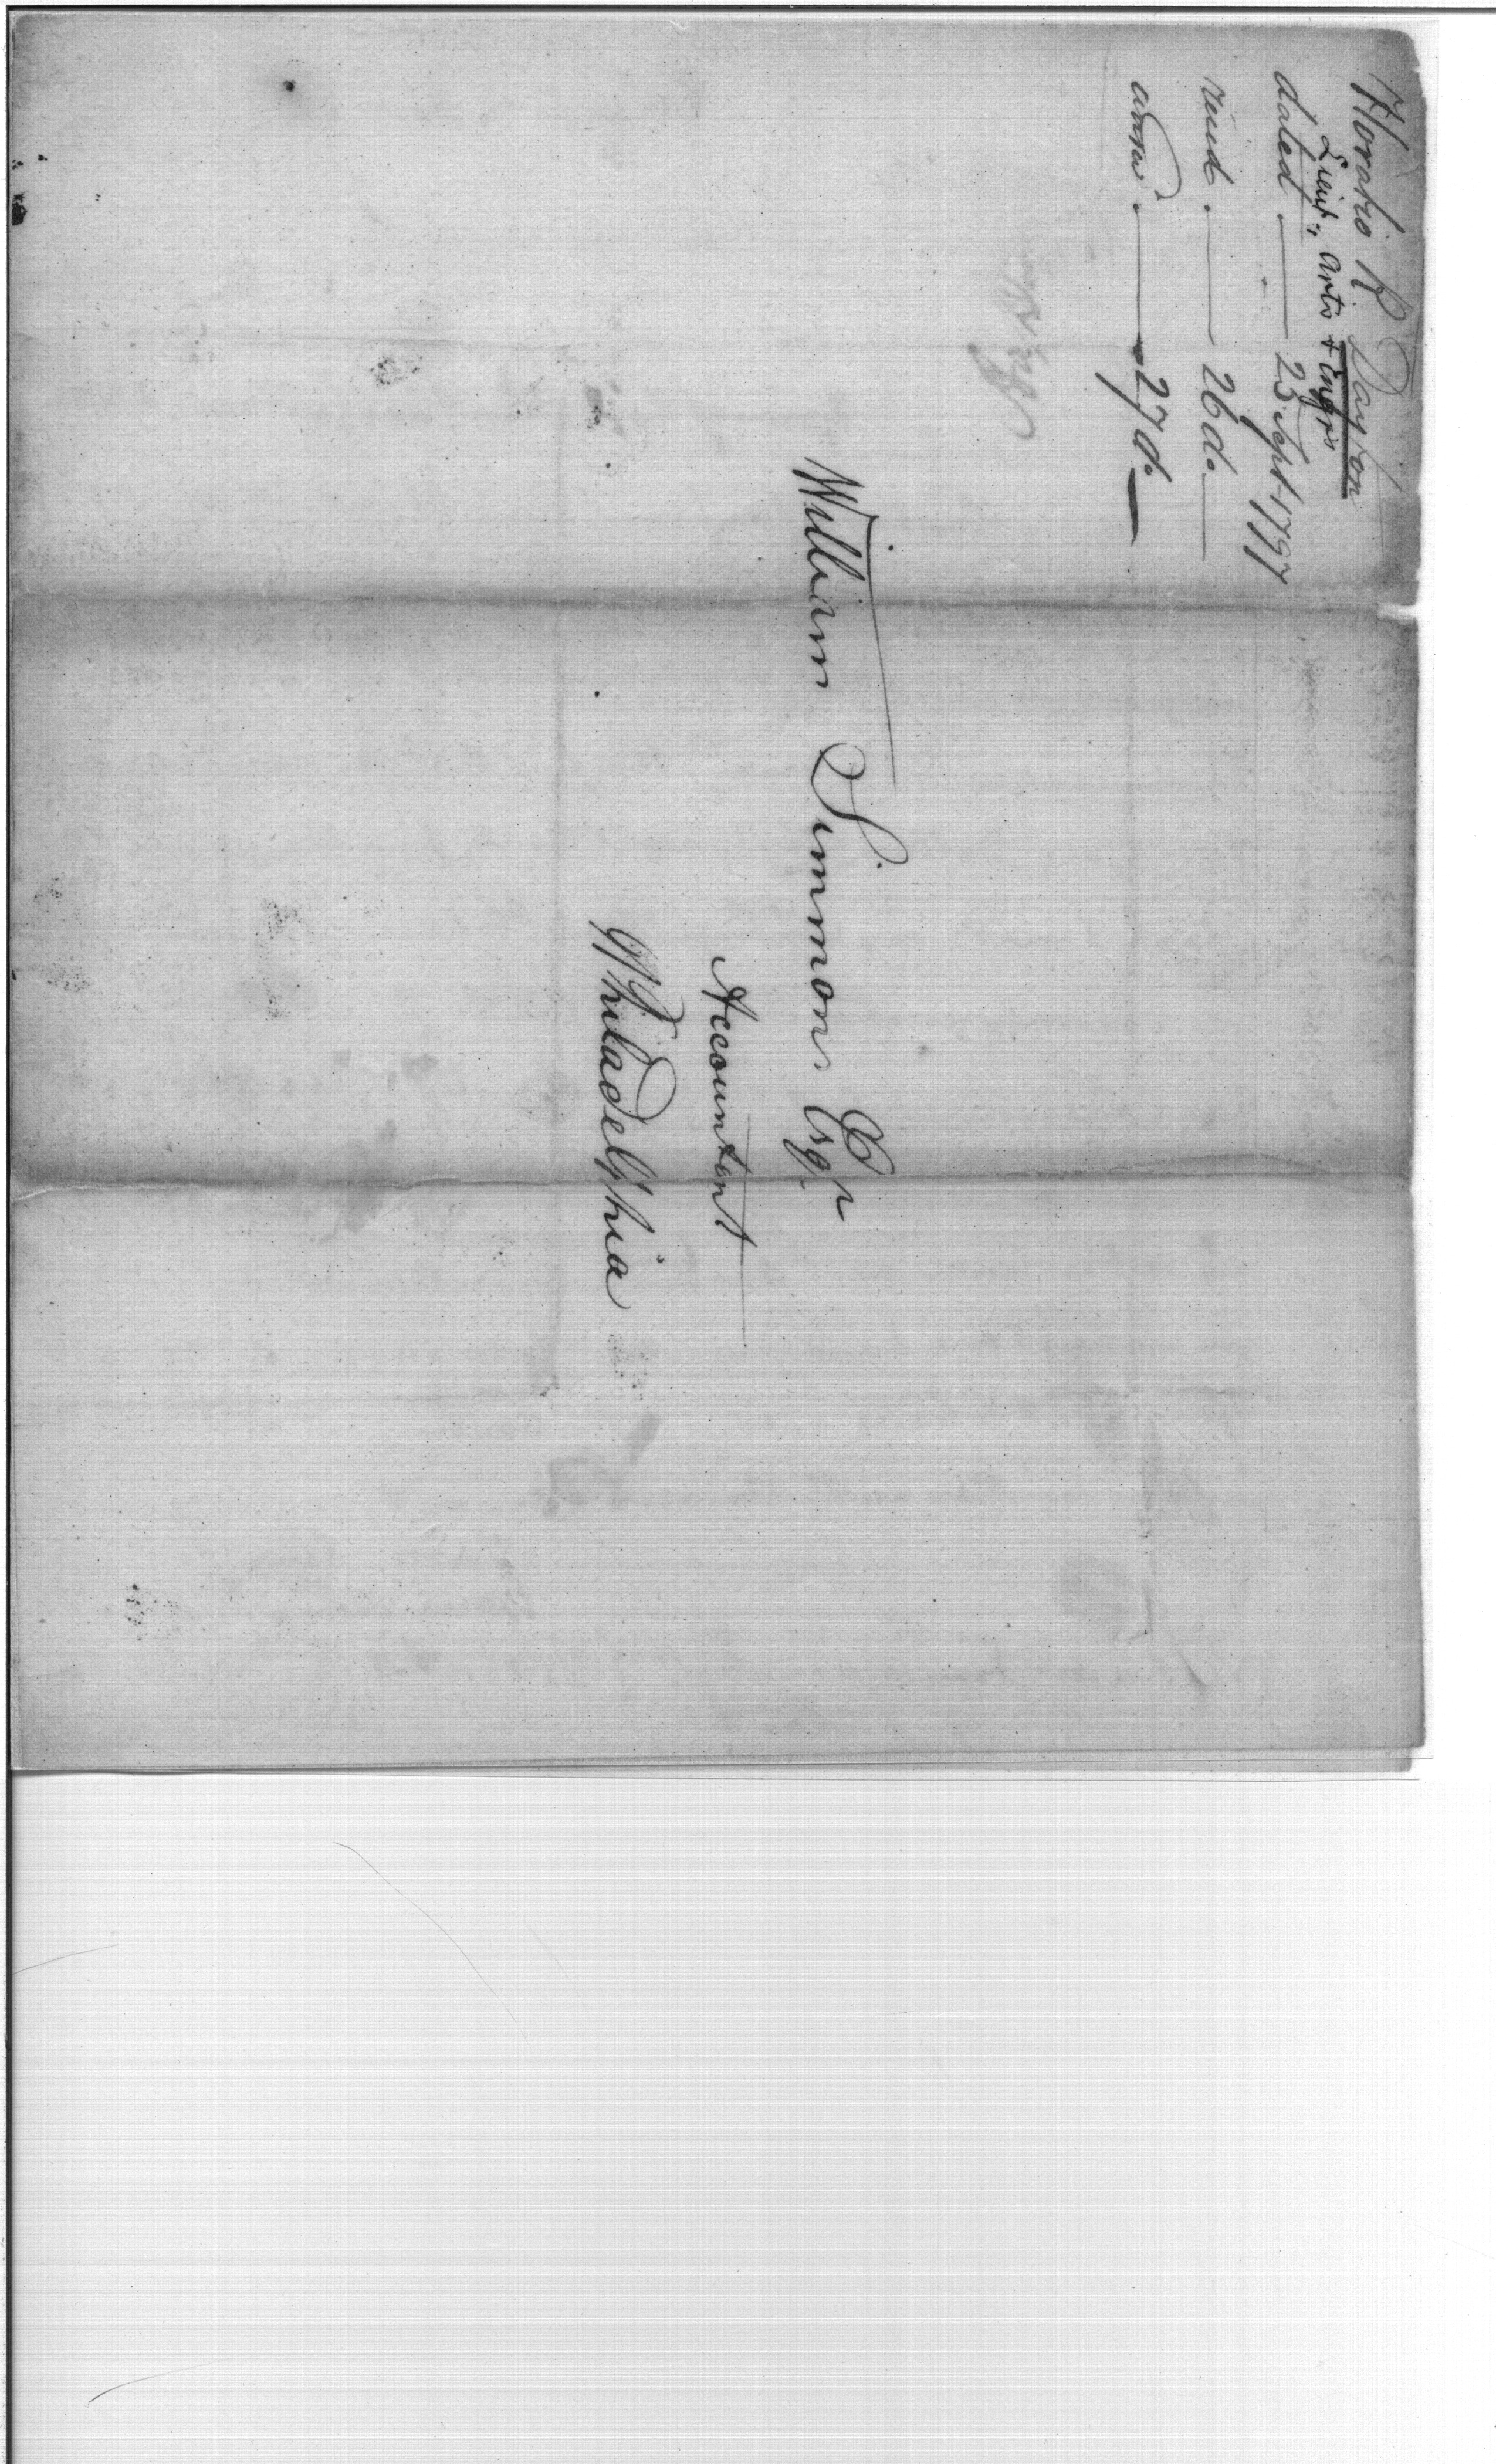 Horatio R Dayton
Lieut., Arts + Engrs
dated . —— 25. Sept. 1797
recd . —— 26 do. —
answd . —— 27 do. —
William Simmons Esqr
Accountant
Philadelphia